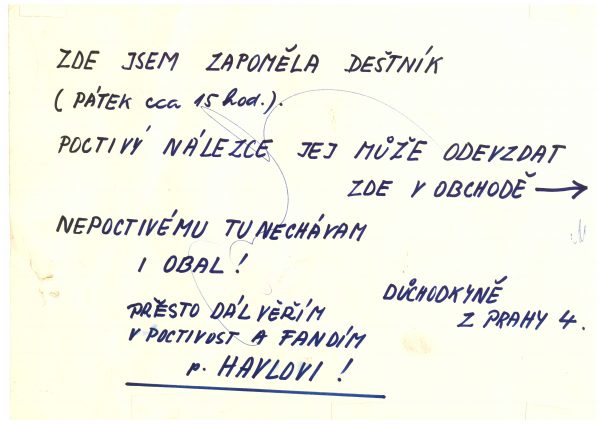 ZDE JSEM ZAPOMĚLA DEŠTNÍK
(PÁTEK cca 15 hod.).
POCTIVÝ NÁLEZCE JEJ MŮŽE ODEVZDAT
ZDE V OBCHODĚ →
NEPOCTIVÉMU TU NECHÁVAM
I OBAL!
PŘESTO DÁL VĚŘÍM
V POCTIVOST A FANDÍM
p. HAVLOVI!
DŮCHODKYNĚ
Z PRAHY 4.